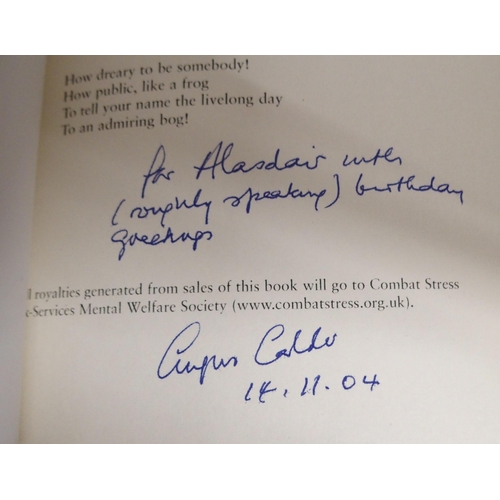 How dreary to be somebody!
How public, like a frog
To tell your name the livelong day
To an admiring bog!
for Alasdair with
(roughly speaking) birthday
greetings
l royalties generated from sales of this book will go to Combat Stress
-Services Mental Welfare Society (www.combatstress.org.uk).
Angus Calder
14.11.04